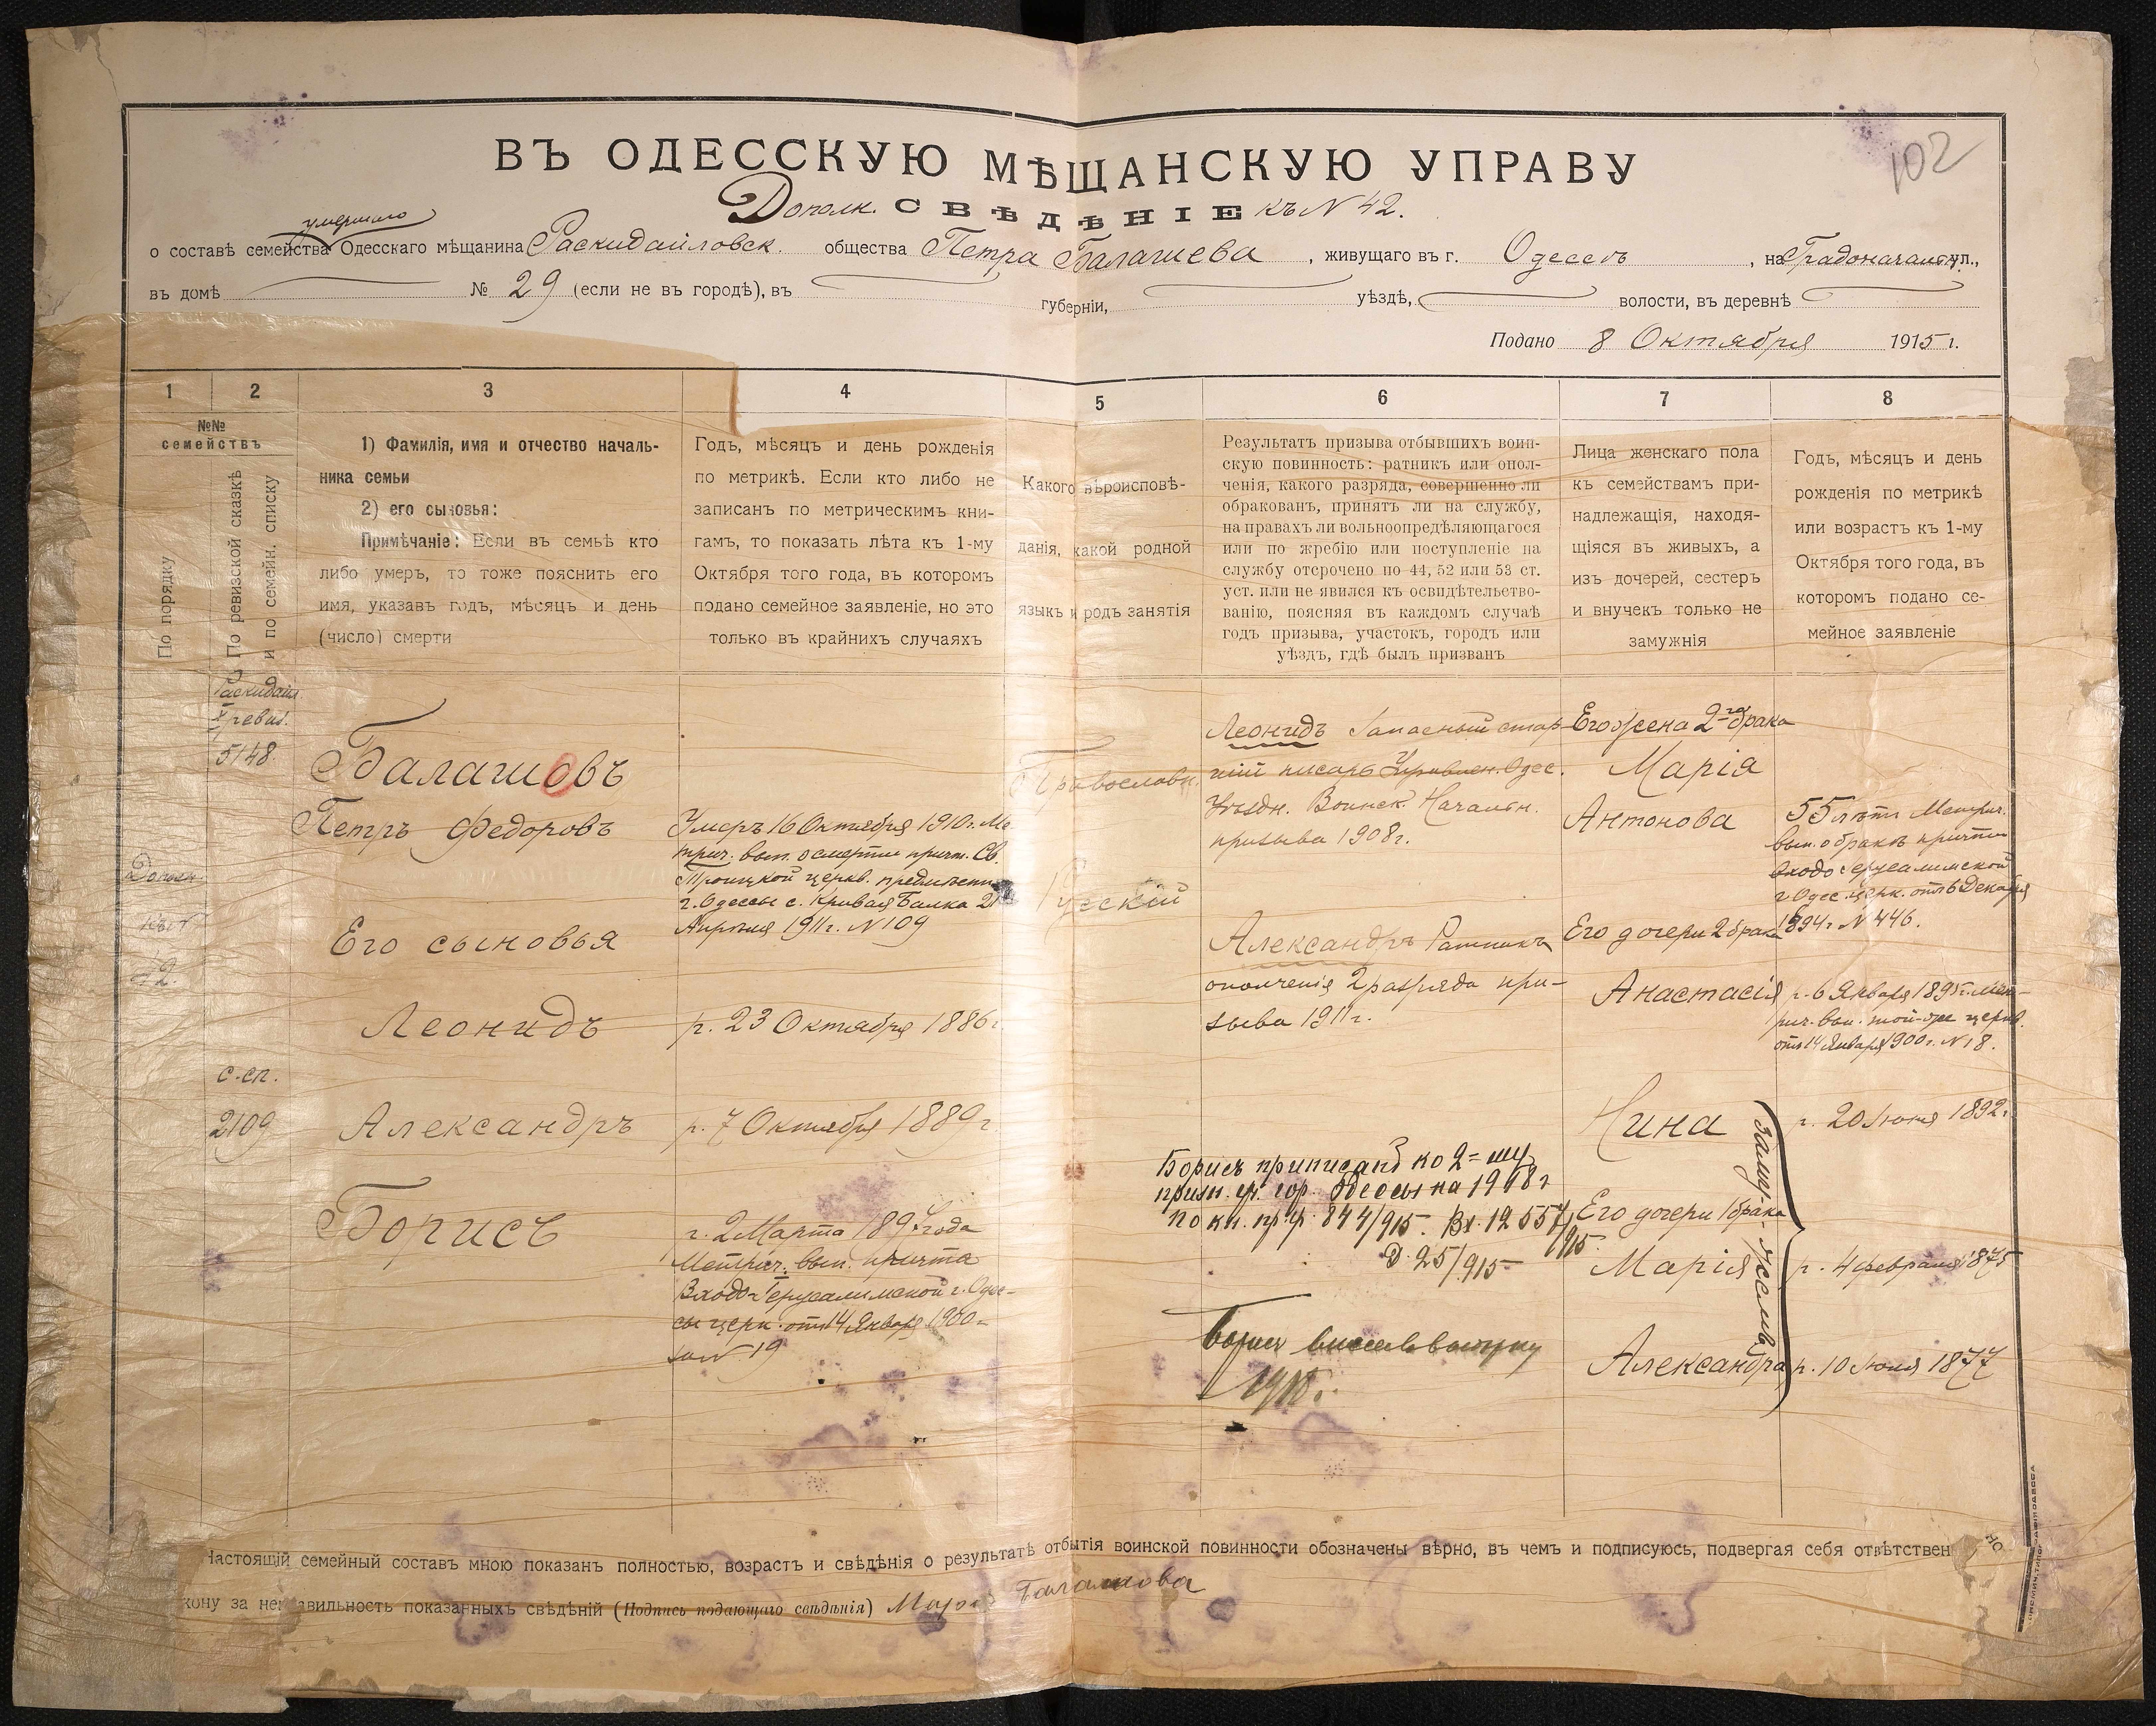 102
ВЪ ОДЕССКУЮ МѢЩАНСКУЮ УПРАВУ
Дополн. СВѢДѢНІЕ къ N 42.
умершаго
о составѣ семейства Одесскаго мѣщанина Раскидайловск. общества Петра Балашева, живущаго въ г. Одессѣ, на Градоначальск. ул.,
въ домѣ № 29 (если не въ городѣ), въ губерніи, уѣздѣ, волости, въ деревнѣ
Подано 8 Октября 1915 г.
1 2 3 4 5 6 7 8
№№
семействъ
По порядку
По ревизской сказкѣ
и по семейн. списку
1) Фамилія, имя и отчество началь-
ника семьи
2) его сыновья:
Примѣчаніе: Если въ семьѣ кто
либо умеръ, то тоже пояснить его
имя, указавъ годъ, мѣсяцъ и день
(число) смерти
Годъ, мѣсяцъ и день рожденія
по метрикѣ. Если кто либо не
записанъ по метрическимъ кни-
гамъ, то показать лѣта къ 1-му
Октября того года, въ которомъ
подано семейное заявленіе, но это
только въ крайнихъ случаяхъ
Какого вѣроисповѣ-
данія, какой родной
языкъ и родъ занятія
Результатъ призыва отбывшихъ воин-
скую повинность: ратникъ или опол-
ченія, какого разряда, совершенно ли
обракованъ, принятъ ли на службу,
на правахъ ли вольноопредѣляющагося
или по жребію или поступленіе на
службу отсрочено по 44, 52 или 53 ст.
уст. или не явился къ освидѣтельство-
ванію, поясняя въ каждомъ случаѣ
годъ призыва, участокъ, городъ или
уѣздъ, гдѣ былъ призванъ
Лица женскаго пола
къ семействамъ при-
надлежащія, находя-
щіяся въ живыхъ, а
изъ дочерей, сестеръ
и внучекъ только не
замужнія
Годъ, мѣсяцъ и день
рожденія по метрикѣ
или возрастъ къ 1-му
Октября того года, въ
которомъ подано се-
мейное заявленіе
Дополн.
къ N
42.
Раскидайл.
X ревиз.
5148
с.сп.
2109
Балашовъ
Петръ Федоровъ
Его сыновья
Леонидъ
Александръ
Борисъ
Умеръ 16 Октября 1910 г. Ме
трич. вып. о смерти причт. Св.
Троицкой церкв. предмѣстія
г. Одессы с. Кривая Балка 21
Апрѣля 1911 г. N 109
р. 23 Октября 1886 г
р. 7 Октября 1889 г
р. 2 Марта 189 года
Метрич. вып. причта
Входо-Іерусалимской г. Одес-
сы церк. отъ 14 Января 1900 г.
за N 19
Православн.
Русскій
Леонидъ Запасный стар
шій писарь Управлен. Одес.
Уѣздн. Воинск. Начальн.
призыва 1908 г.
Александръ Ратникъ
ополченія 2 разряда при-
зыва 1911 г.
Борисъ приписанъ ко 2=му
призн. уч. гор. Одессы на 1918 г
по кн. пр. ф. 844/915 Вх. 12557/915
Д. 25/915
Борис
Его жена 2го брака
Марія
Антонова
Его дочери 2 брака
Анастасія
Нина
Его дочери 1 брака
Марія
Александра
замужемъ
55 лѣтъ Метрич.
вып. о бракѣ причта
Входо Іерусалимской
г. Одес. церк. отъ 6 Декабря
1894 г. N 446.
р. 6 Января 1895 г. мет-
рич. вып. той-же церкв.
отъ 14 Января 1900 г. N 18.
р. 20 Іюня 1892 г
р. 4 февраля 1875
р. 10 Іюня 1877
Настоящій семейный составъ мною показанъ полностью, возрастъ и свѣдѣнія о результатѣ отбытія воинской повинности обозначены вѣрно, въ чемъ и подписуюсь, подвергая себя отвѣтствен
кону за неправильность показанныхъ свѣдѣній (Подпись подающаго свѣдѣнія) Марія Балашова